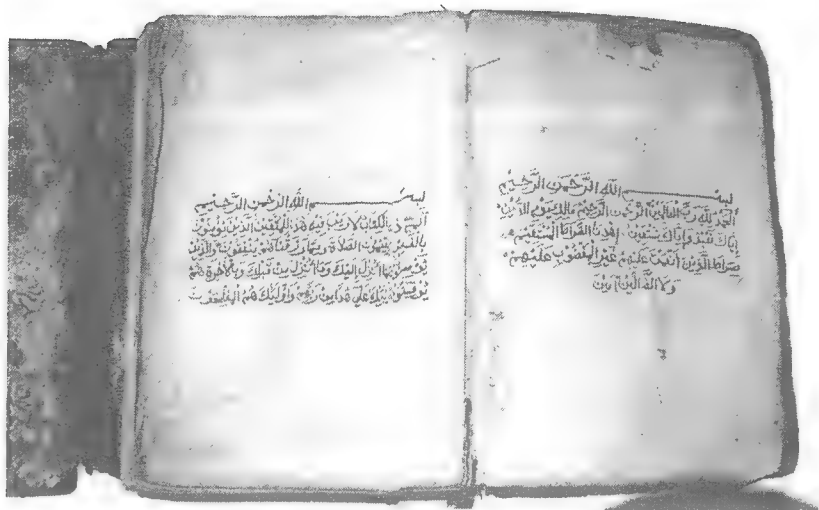 بسم الله الرَّحْمَنِ الرَّحِيْمِ
الحمد لله رَبِّ العالمين الرحمن الرحيم مالك يوم الدِّينِ
إياك نعبد وإياك نستعين إهدنا الصراط المستقيم
صراط الَّذِينَ أنعمت عليهم غَيْرِ المغضوب عَلَيْهِمْ
وَلَا الضَّالِّينَ آمين
بسم الله الرحمن الرحيم
الم ذلك الكتاب لا ريب فيه هدى للمتقين الذين يؤمنون
بالغيب ويقيمون الصلاة ومما رزقناهم ينفقون والذين
يؤمنون بما أنزل إليك وما أنزل من قبلك وبالآخرة هم
يوقنون أولئك على هدى من ربهم وأولئك هم المفلحون